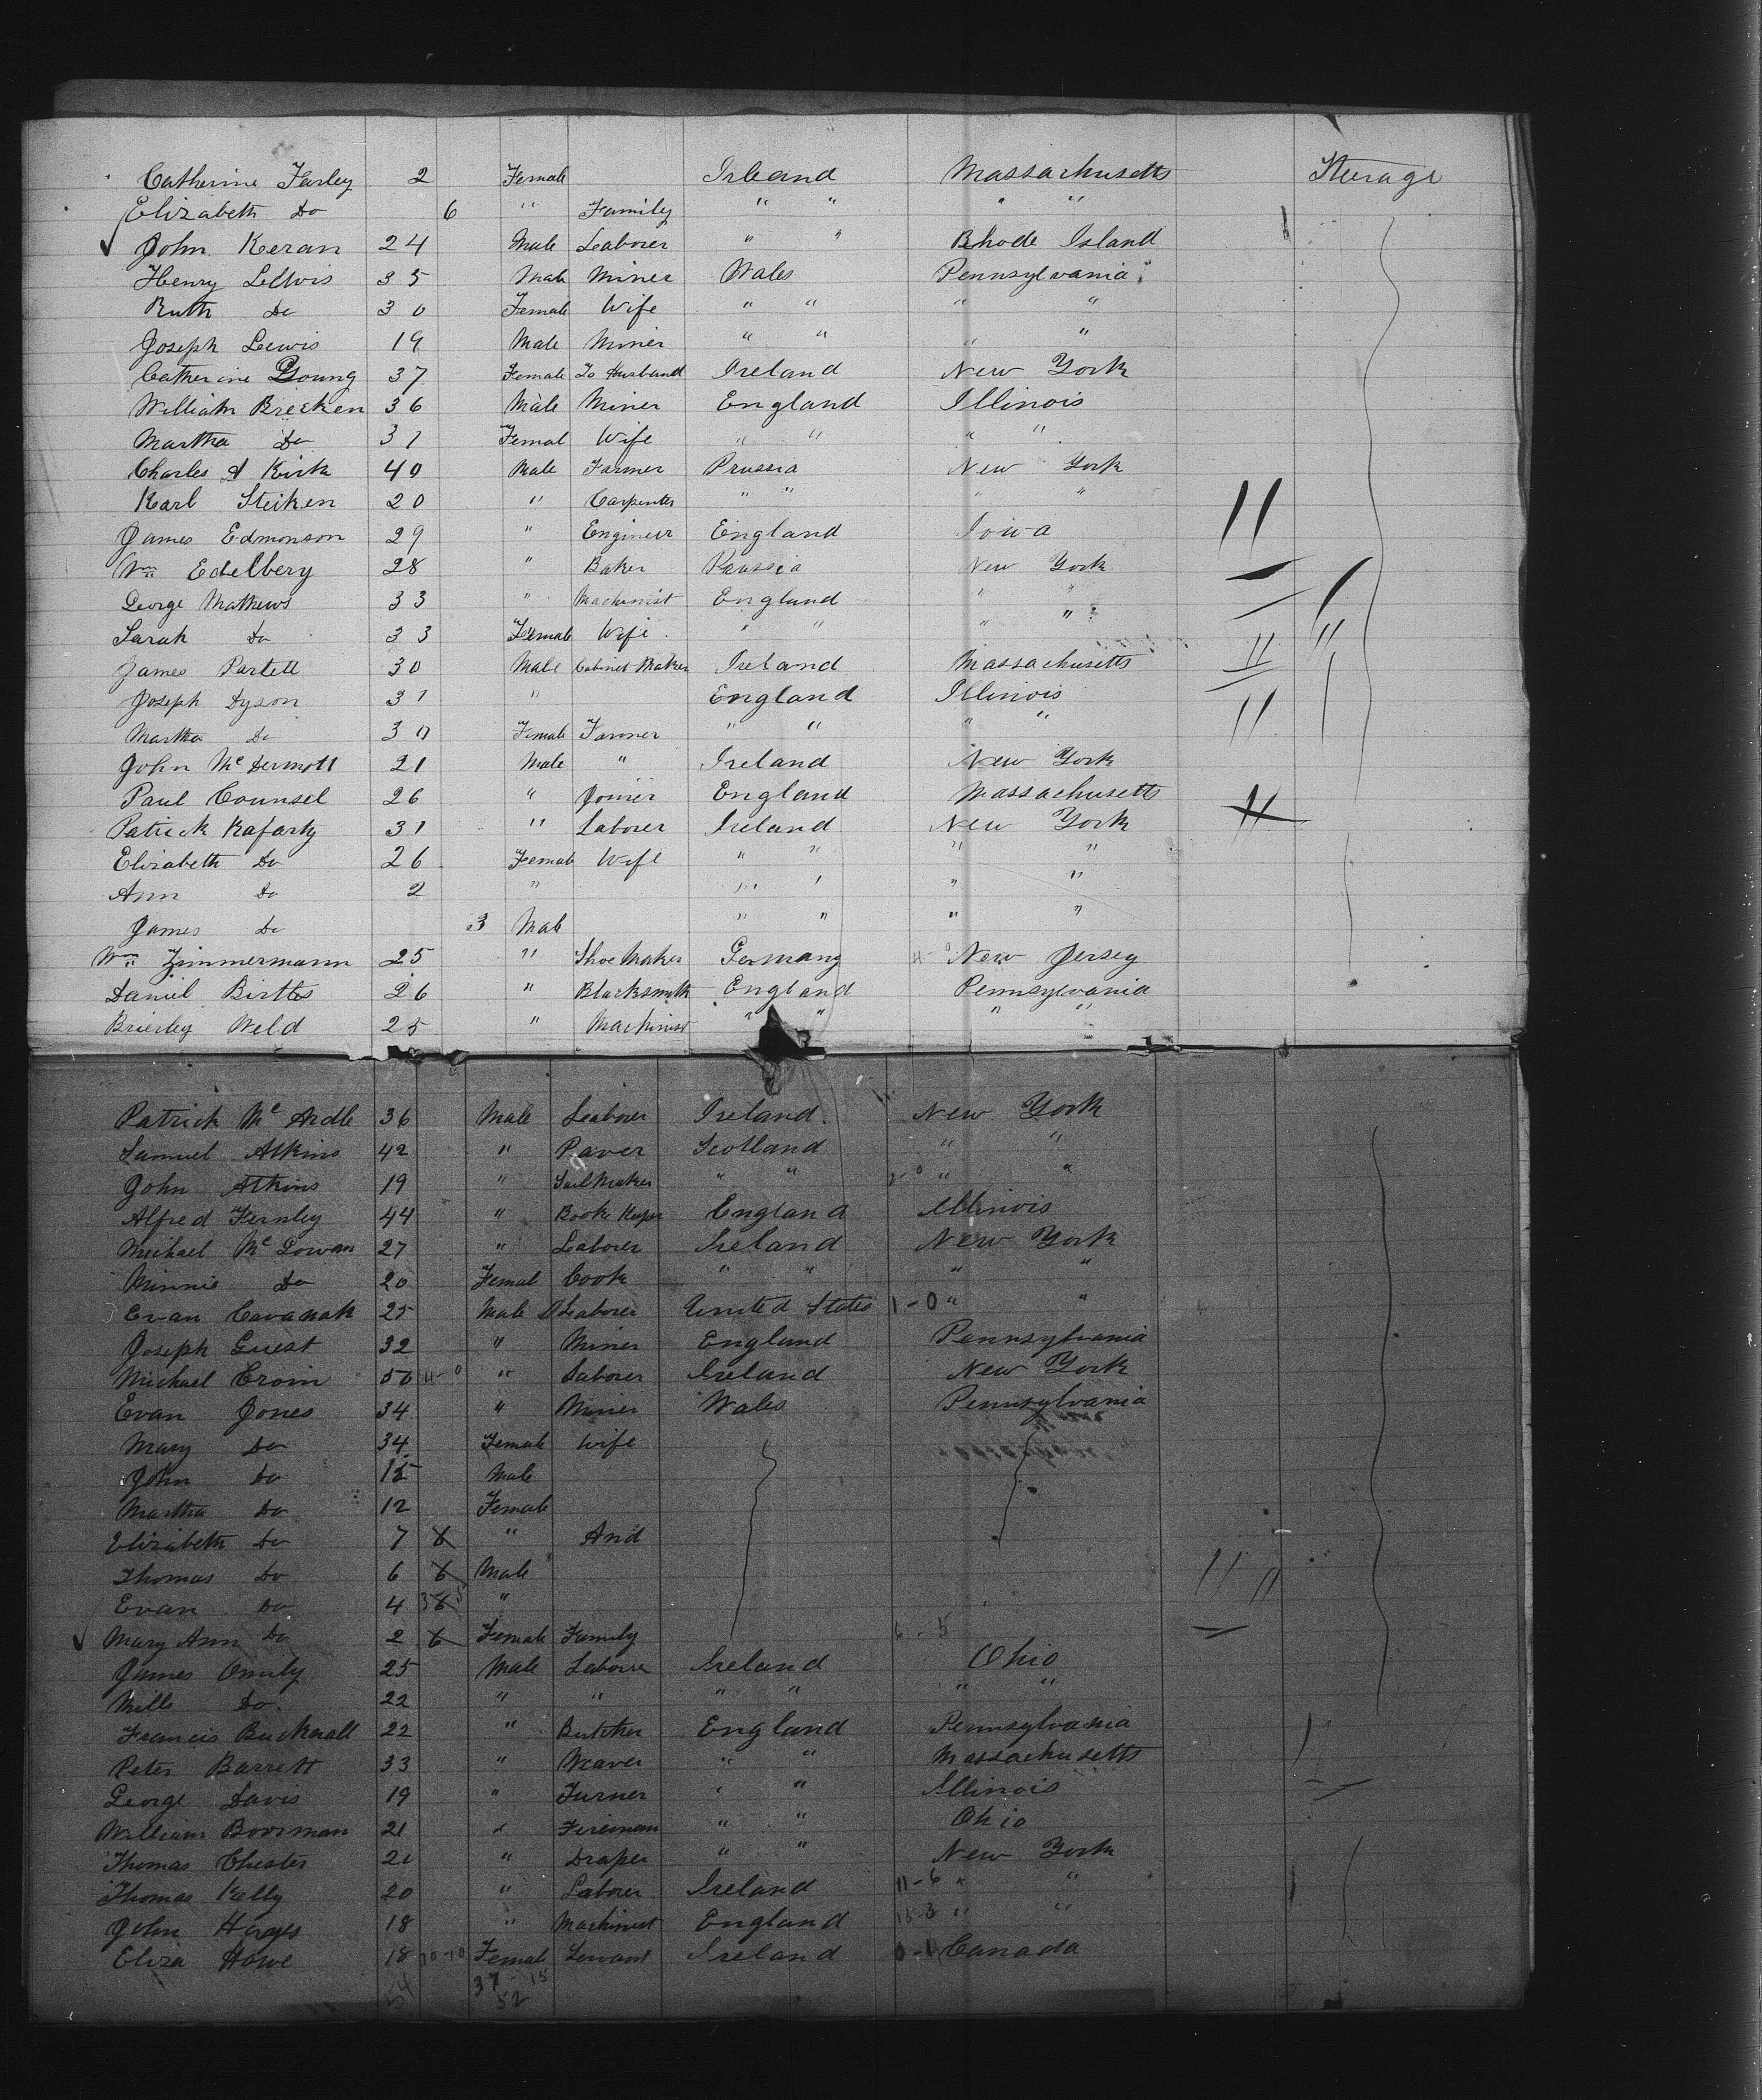 Catherine Farley 2 Female Irleand Massachusetts Sterage
Elizabeth Do 6 " Family " " " "
John Keran 24 Male Laborer " " Rhode Island
Henry Ledwis 35 Male Miner Wales Pennsylvania
Ruth Do 30 Female Wife " " " "
Joseph Lewis 19 Male Miner " " " "
Catherine Young 37 Female To Husband Ireland New York
William Brecken 36 Male Miner England Illinois
Martha Do 31 Femal Wife " " " "
Charles A Kirk 40 Male Farmer Prussia New York
Karl Steiken 20 " Carpenter " " " "
James Edmonson 29 " Engineer England Iowa
Wm Edelbery 28 " Baker Prussia New York
George Mathews 33 " Machinist England " "
Sarah Do 33 Female Wife " " " "
James Partell 30 Male Cabinet Maker Ireland Massachusetts
Joseph Dyson 31 " England Illinois
Martha Do 30 Female Farmer " " " "
John Mc Dermott 21 Male " Ireland New York
Paul Counsel 26 " Joiner England Massachusetts
Patrick Rafarty 31 " Laborer Ireland New York
Elizabeth Do 26 Female Wife " " " "
Ann Do 2 " " " " "
James Do 3 Male " " " "
Wm Zimmermann 25 " Shoe Maker Germany New Jersey
Daniel Birttes 26 " Blacksmith England Pennsylvania
Brierley Weld 25 " Machinist " " " "
Patrick Mc Ardle 36 Male Laborer Ireland New York
Samuel Atkins 42 " Paver Scotland " "
John Atkins 19 " Sailmaker " " " "
Alfred Fernley 44 " Book Keeper England Illinois
Michael Mc Gowan 27 " Laborer Ireland New York
Minnie Do 20 Femal Cook " " " "
Evan Cavanah 25 Male Laborer United States 1-0 " "
Joseph Guest 32 " Miner England Pennsylvania
Michael Cronin 50 " Laborer Ireland New York
Evan Jones 34 " Miner Wales Pennsylvania
Mary Do 34 Female Wife
John Do 15 Male
Martha Do 12 Female
Elizabeth Do 7 " And
Thomas Do 6 Male
Evan Do 4 "
Mary Ann Do 2 Female Family 6-5
James Omily 25 Male Laborer Ireland Ohio
Mills Do 22 " " " " " "
Francis Bucknall 22 " Butcher England Pennsylvania
Peter Barrett 33 " Weaver " " Massachusetts
George Davis 19 " Turner " " Illinois
William Boorman 21 " Fireman " " Ohio
Thomas Chester 21 " Draper " " New York
Thomas Kelly 20 " Laborer Ireland 11-6 " "
John Hayes 18 " Machinist England 15-3 " "
Eliza Howe 18 10-10 Female Servant Ireland Canada
54 37-15
52